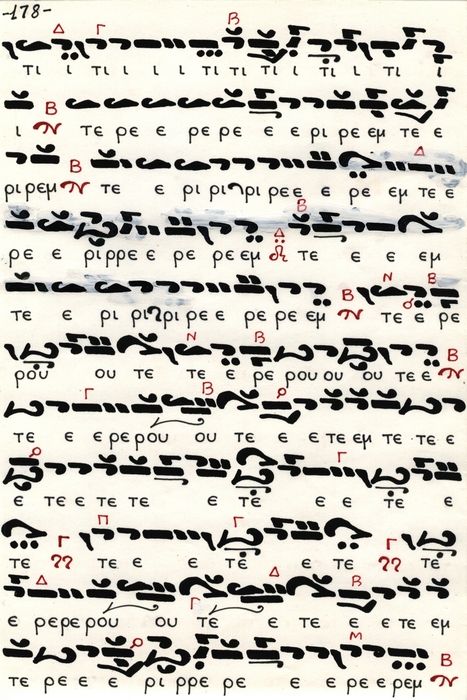 -178-
τι ι τι ι ι τι τι τι ι τι ι τι ι
ι τε ρε ε ρε ρε ε ε ρι ρε εμ τε ε
ρι ρεμ τε ε ρι ρι ρι ρε ε ε ρε εμ τε ε
ρε ε ρι ρρε ε ρε ρε εμ τε ε ε εμ
τε ε ρι ρι ρι ρε ε ρε ρε εμ τε ε ρε
ρου ου τε τε ε ρε ρου ου ου τε ε
τε ε ε ρε ρου ου τε ε ε τε εμ τε τε ε
ε τε ε τε τε ε τε ε ε τε ε
τε τε ε ε τε ε τε τε
ε ρε ρε ρου ου τε ε τε ε ε τε εμ
τε ρε ε ε ρι ρρε ρε ε ε ρε ε ρεμ